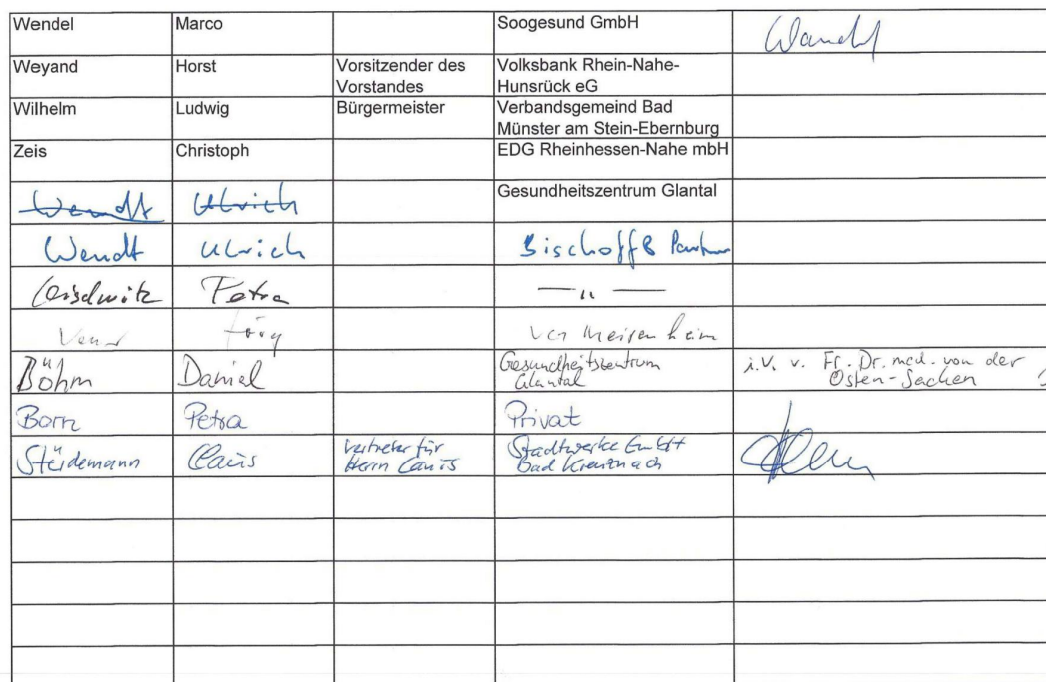 Wendel Marco Soogesund GmbH
Weyand Horst Vorsitzender des Volksbank Rhein-Nahe-
Vorstandes Hunsrück eG
Wilhelm Ludwig Bürgermeister Verbandsgemeind Bad
Münster am Stein-Ebernburg
Zeis Christoph EDG Rheinhessen-Nahe mbH
Wendt Ulrich Gesundheitszentrum Glantal
Wendt Ulrich Bischoff & Partner
Petra — " —
Jörg Meisenheim
Böhm Daniel Gesundheitszentrum i.V. v. Fr. Dr. med. von der
Glantal Osten-Sacken
Born Petra Privat
Stüdemann Claus Vertreter für Stadtwerke GmbH
Herrn Canis Bad Kreuznach